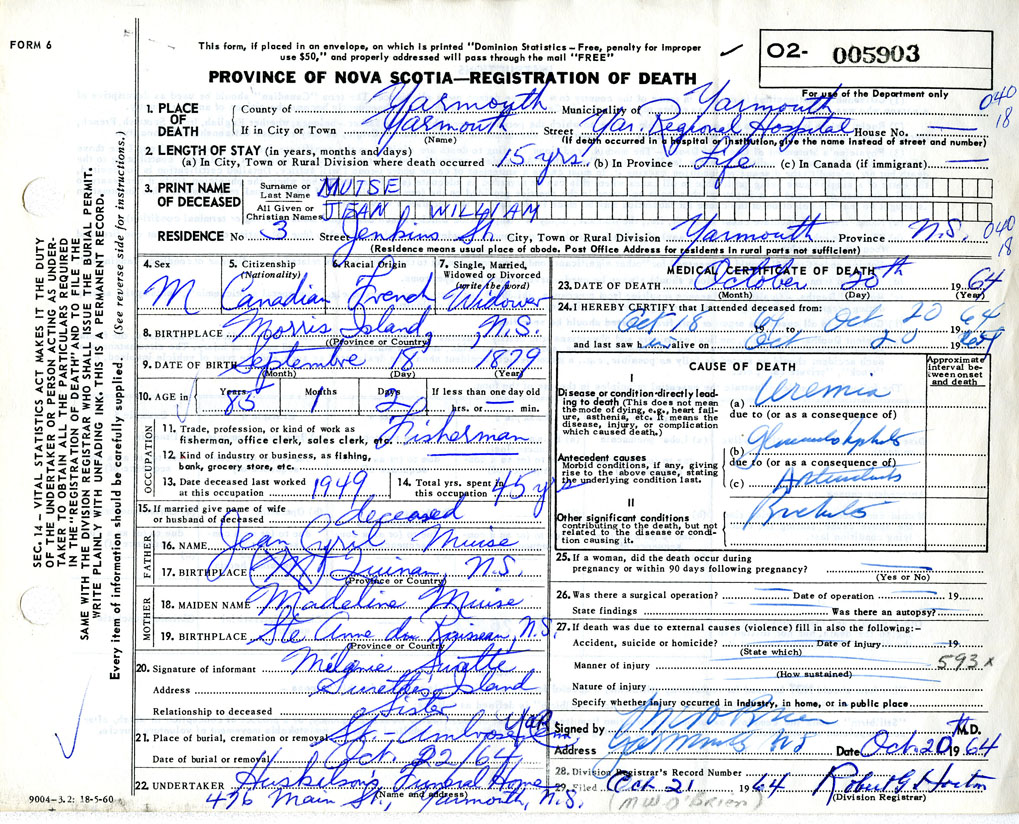 FORM 6
This form, if placed in an envelope, on which is printed "Dominion Statistics – Free, penalty for improper
use $50," and properly addressed will pass through the mail "FREE"
O2- 005903
PROVINCE OF NOVA SCOTIA—REGISTRATION OF DEATH
For use of the Department only
040
18
1. PLACE OF DEATH County of Yarmouth Municipality of Yarmouth
If in City or Town Yarmouth Street Yar. Regional Hospital House No. —
(Name) (If death occurred in a hospital or institution, give the name instead of street and number)
2. LENGTH OF STAY (in years, months and days)
(a) In City, Town or Rural Division where death occurred 15 yrs (b) In Province Life (c) In Canada (if immigrant) —
3. PRINT NAME OF DECEASED Surname or Last Name MUISE
All Given or Christian Names JEAN WILLIAM
RESIDENCE No 3 Street Jenkins St. City, Town or Rural Division Yarmouth Province N.S. 040
18
(Residence means usual place of abode. Post Office Address for residents in rural parts not sufficient)
4. Sex M
5. Citizenship (Nationality) Canadian
6. Racial Origin French
7. Single, Married, Widowed or Divorced (write the word) Widower
8. BIRTHPLACE Morris Island, N.S.
(Province or Country)
9. DATE OF BIRTH Septembre 18 1879
(Month) (Day) (Year)
10. AGE in Years 85 Months 1 Days 2 If less than one day — hrs. or — min.
OCCUPATION
11. Trade, profession, or kind of work as
fisherman, office clerk, sales clerk, etc. Fisherman
12. Kind of industry or business, as fishing,
bank, grocery store, etc.
13. Date deceased last worked at this occupation 1949
14. Total yrs. spent in this occupation 45 yrs
15. If married give name of wife
or husband of deceased deceased
FATHER
16. NAME Jean Cyril Muise
17. BIRTHPLACE Quinan, N.S.
(Province or Country)
MOTHER
18. MAIDEN NAME Madeline Muise
19. BIRTHPLACE Ste Anne du Ruisseau, N.S.
(Province or Country)
20. Signature of informant Mélanie Surette
Address Surettes Island
Relationship to deceased Sister
21. Place of burial, cremation or removal St-Ambrose Cem
Date of burial or removal Oct. 22/64
22. UNDERTAKER Huskilson's Funeral Home
(Name and address)
476 Main St., Yarmouth, N.S.
MEDICAL CERTIFICATE OF DEATH
23. DATE OF DEATH October 20th 1964
(Month) (Day) (Year)
24. I HEREBY CERTIFY that I attended deceased from:
Oct 18 19 64 to Oct 20 19 64
and last saw h im alive on Oct 20 19 64
CAUSE OF DEATH
Approximate interval between onset and death
I
Disease or condition directly leading to death (This does not mean
the mode of dying, e.g., heart failure, asthenia, etc. It means the
disease, injury, or complication
which caused death.)
(a) Uremia
due to (or as a consequence of)
(b)
Antecedent causes
Morbid conditions, if any, giving
rise to the above cause, stating
the underlying condition last.
due to (or as a consequence of)
(c)
II
Other significant conditions
contributing to the death, but not
related to the disease or condition causing it.
25. If a woman, did the death occur during
pregnancy or within 90 days following pregnancy?
(Yes or No)
26. Was there a surgical operation? Date of operation 19
State findings Was there an autopsy?
27. If death was due to external causes (violence) fill in also the following:–
Accident, suicide or homicide? Date of injury 19
(State which)
Manner of injury 593x
(How sustained)
Nature of injury
Specify whether injury occurred in Industry, in home, or in public place
Signed by M W O'Brien M.D.
Address Yarmouth NS Date Oct. 20th 1964
28. Division Registrar's Record Number
29. Filed Oct 21 1964 Robert G Horton
(M W O'Brien) (Division Registrar)
SEC. 14 – VITAL STATISTICS ACT MAKES IT THE DUTY
OF THE UNDERTAKER OR PERSON ACTING AS UNDERTAKER TO OBTAIN ALL THE PARTICULARS REQUIRED
IN THE "REGISTRATION OF DEATH" AND TO FILE THE
SAME WITH THE DIVISION REGISTRAR WHO SHALL ISSUE THE BURIAL PERMIT.
WRITE PLAINLY WITH UNFADING INK. THIS IS A PERMANENT RECORD.
Every item of information should be carefully supplied. (See reverse side for instructions.)
9004-3.2: 18-5-60